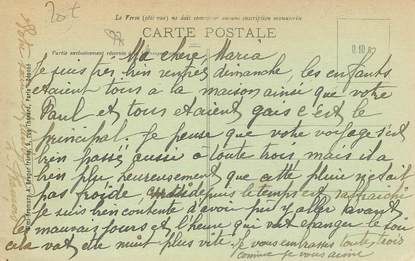 Tot
Le Verso (côté vue) ne doit contenir aucune inscription manuscrite
CARTE POSTALE
Partie exclusivement réservée
Ma chere Maria
Je suis tres bien rentrée dimanche, les enfants
etaient tous a la maison ainsi que votre
Paul et tous etaient gais c'est le
principal. Je pense que votre voyage s'est
bien passé aussi a toute trois, mais il a
bien plu heureusement que cette pluie n'etait
pas froide, depuis le temps est raffraichie
Je suis bien contente d'avoir pu y aller avant
les mauvais jours et l'heure qui vat changer le tou
cela vat de nuit plus vite. Je vous embrasse toute trois
comme je vous aime